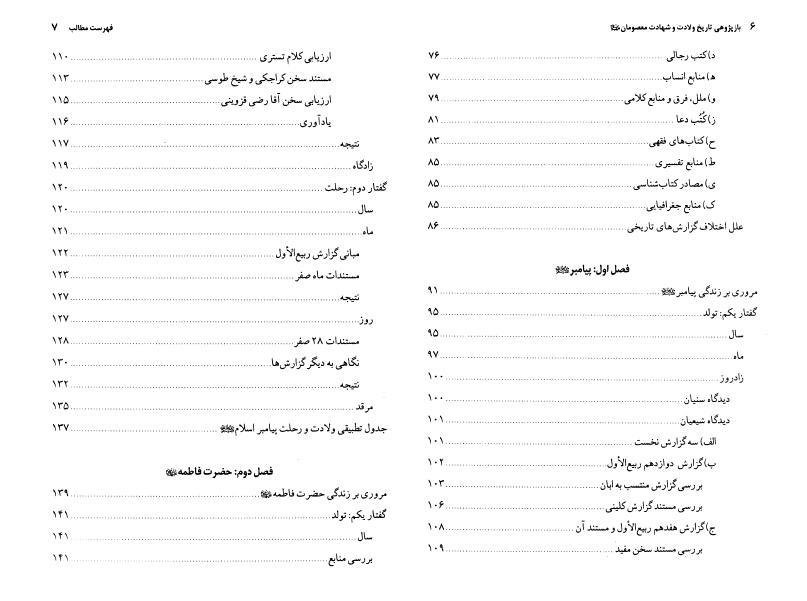 ۶ بازپژوهی تاریخ ولادت و شهادت معصومان
د) کتب رجالی ۷۶
ه) منابع انساب ۷۷
و) ملل، فرق و منابع کلامی ۷۹
ز) کُتُب دعا ۸۱
ح) کتاب‌های فقهی ۸۳
ط) منابع تفسیری ۸۵
ی) مصادر کتاب‌شناسی ۸۵
ک) منابع جغرافیایی ۸۵
علل اختلاف گزارش‌های تاریخی ۸۶
فصل اول: پیامبر ﷺ
مروری بر زندگی پیامبر ﷺ ۹۱
گفتار یکم: تولد ۹۵
سال ۹۵
ماه ۹۷
زادروز ۱۰۰
دیدگاه سنیان ۱۰۰
دیدگاه شیعیان ۱۰۱
الف) سه گزارش نخست ۱۰۱
ب) گزارش دوازدهم ربیع‌الأول ۱۰۲
بررسی گزارش منتسب به ابان ۱۰۳
بررسی مستند گزارش کلینی ۱۰۶
ج) گزارش هفدهم ربیع‌الأول و مستند آن ۱۰۸
بررسی مستند سخن مفید ۱۰۹
فهرست مطالب ۷
ارزیابی کلام تستری ۱۱۰
مستند سخن کراجکی و شیخ طوسی ۱۱۳
ارزیابی سخن آقا رضی قزوینی ۱۱۵
یادآوری ۱۱۶
نتیجه ۱۱۷
زادگاه ۱۱۹
گفتار دوم: رحلت ۱۲۰
سال ۱۲۰
ماه ۱۲۱
مبانی گزارش ربیع‌الأول ۱۲۲
مستندات ماه صفر ۱۲۳
نتیجه ۱۲۷
روز ۱۲۷
مستندات ۲۸ صفر ۱۲۸
نگاهی به دیگر گزارش‌ها ۱۳۰
نتیجه ۱۳۲
مرقد ۱۳۵
جدول تطبیقی ولادت و رحلت پیامبر اسلام ﷺ ۱۳۷
فصل دوم: حضرت فاطمه
مروری بر زندگی حضرت فاطمه ۱۳۹
گفتار یکم: تولد ۱۴۱
سال ۱۴۱
بررسی منابع ۱۴۱